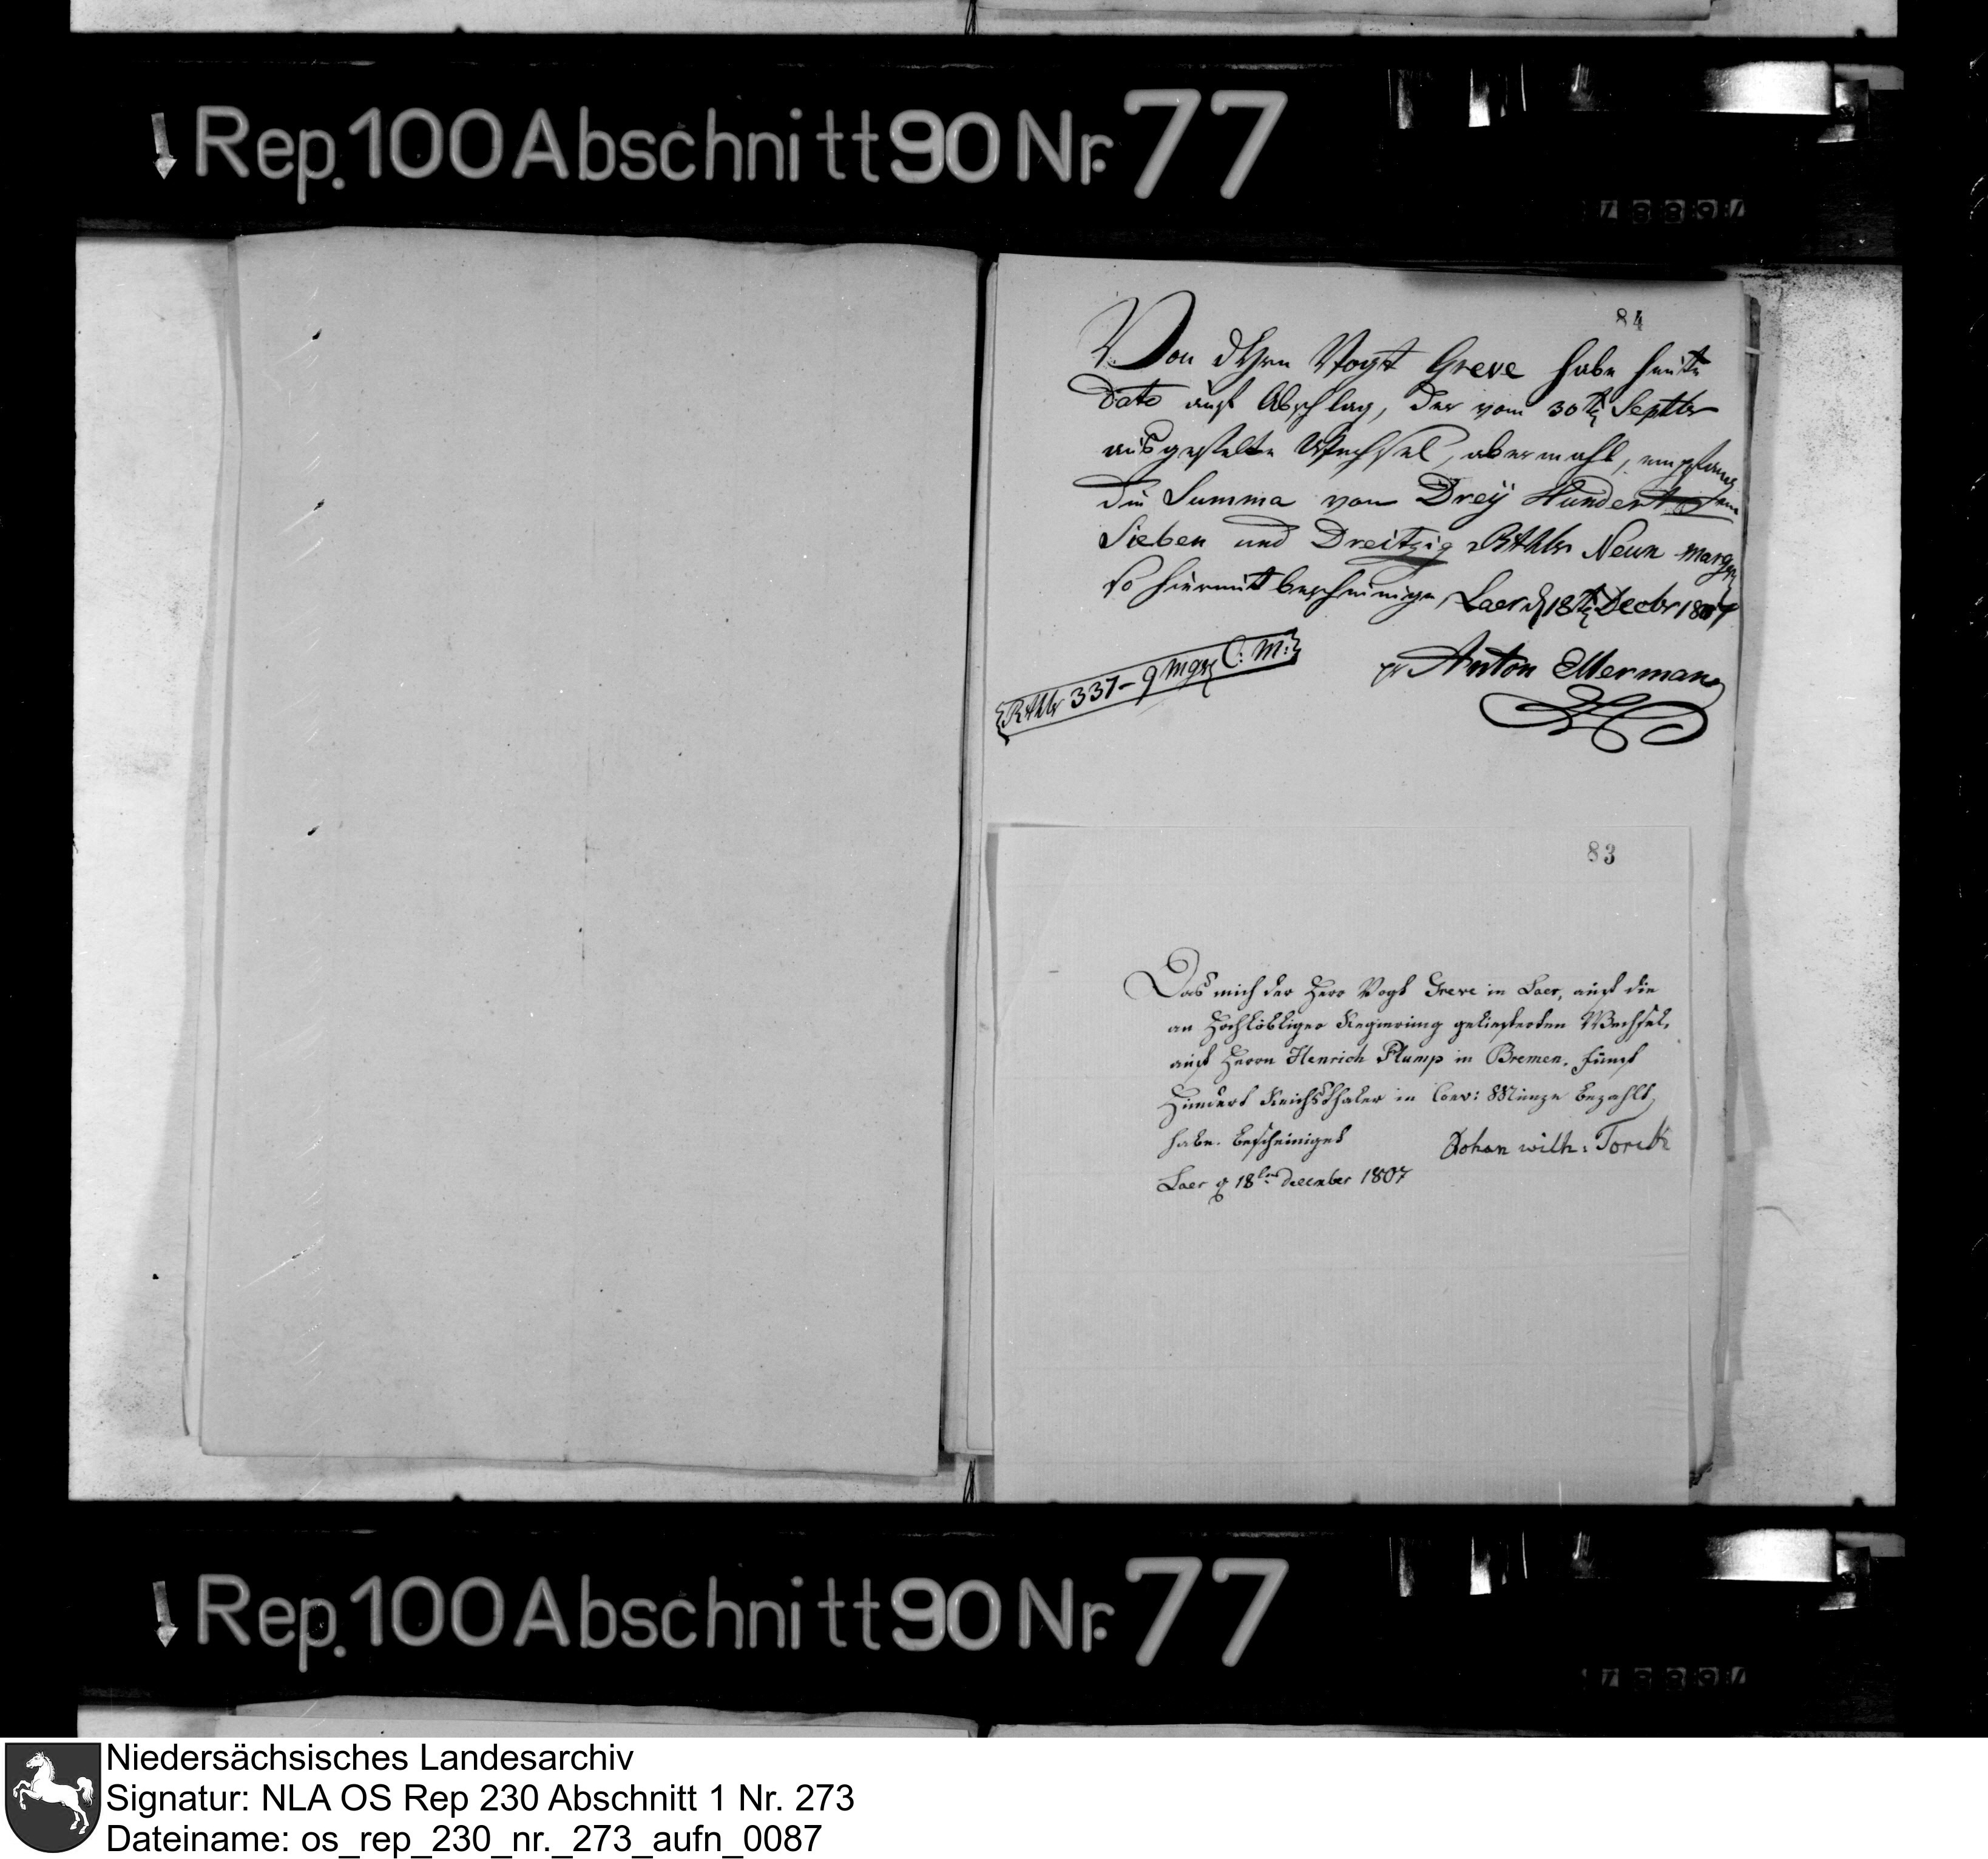 Rep. 100 Abschnitt 90 Nr. 77
84
Von dHrn Vogt Greve habe heute
Dato auf Abschlag, der vom 30ten Septbr
ausgestelte Wechsel, abermahl, empfangen
die Summa von Drey Hundert
Sieben und Dreitzig Rthlr Neun margr
so hiermit bescheinige, Laer d 18ten Decbr 1807
Rthlr 337 - 9 mgr C: M:
Anton Ellerman
83
Das mich der Herr Vogt Greve in Laer, auf die
an Hochlöbliger Regierung geliefterten Wechsel,
auf Herrn Henrich Plump in Bremen, fünf
Hundert Reichsthaler in Conv: Münze bezahlt
habe. bescheiniget
Johan wilh:
Laer d 18ten december 1807
Rep. 100 Abschnitt 90 Nr. 77
Niedersächsisches Landesarchiv
Signatur: NLA OS Rep 230 Abschnitt 1 Nr. 273
Dateiname: os_rep_230_nr._273_aufn_0087